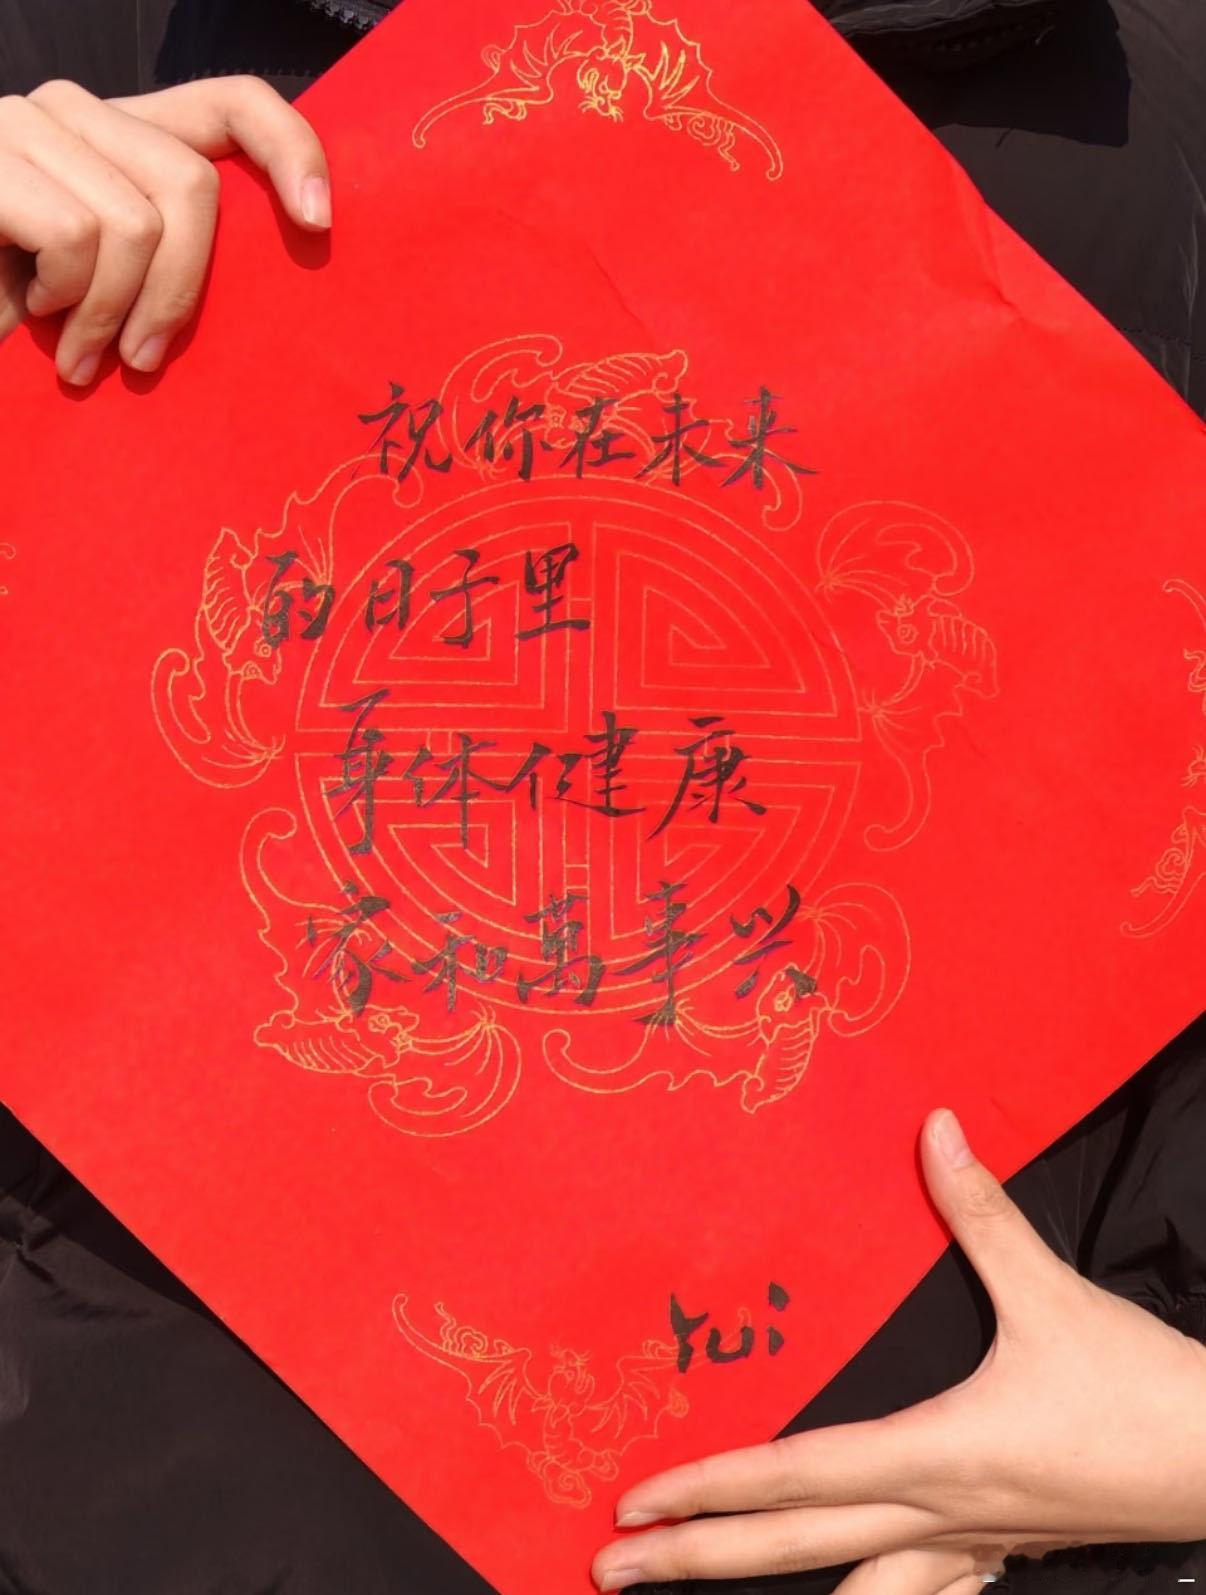 祝你在未来
的日子里
身体健康
家和萬事兴
Yui